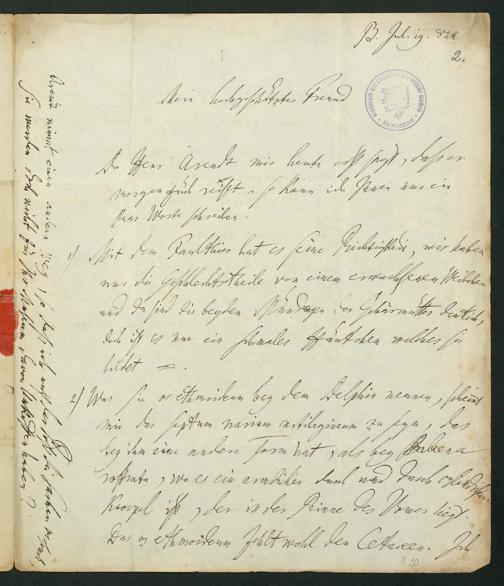 B. Jul. 19. 822
2.
Mein hochgeschätzter Freund
Da Herr Arendt mir heute erst sagt, dass er
morgen früh reist, so kann ich Ihnen nur ein
Paar Worte schreiben.
1) Mit dem Faulthier hat es seine Richtigkeit, wir haben
nur die Geschlechtstheile von einem erwachsenen Weibchen
und da sind die beyden Mündungen der Gebärmutter deutlich,
doch ist es nur ein schmales Häutchen welches sie
bildet
2) Was Sie os ethmoideum bey dem Delphin nennen, scheint
mir das septum narium cartilagineum zu seyn, das
bey ihm eine andere Form hat, als bey Balaena
rostrata, wo es ein rundlicher durch und durch
Knorpel ist, der in der Rinne des Vomer liegt.
Das os ethmoideum fehlt wohl den Cetaceen. Ich
Arendt nimmt einen andern Weg, so dass ich
Sie werden doch nicht für Ihr Museum davon